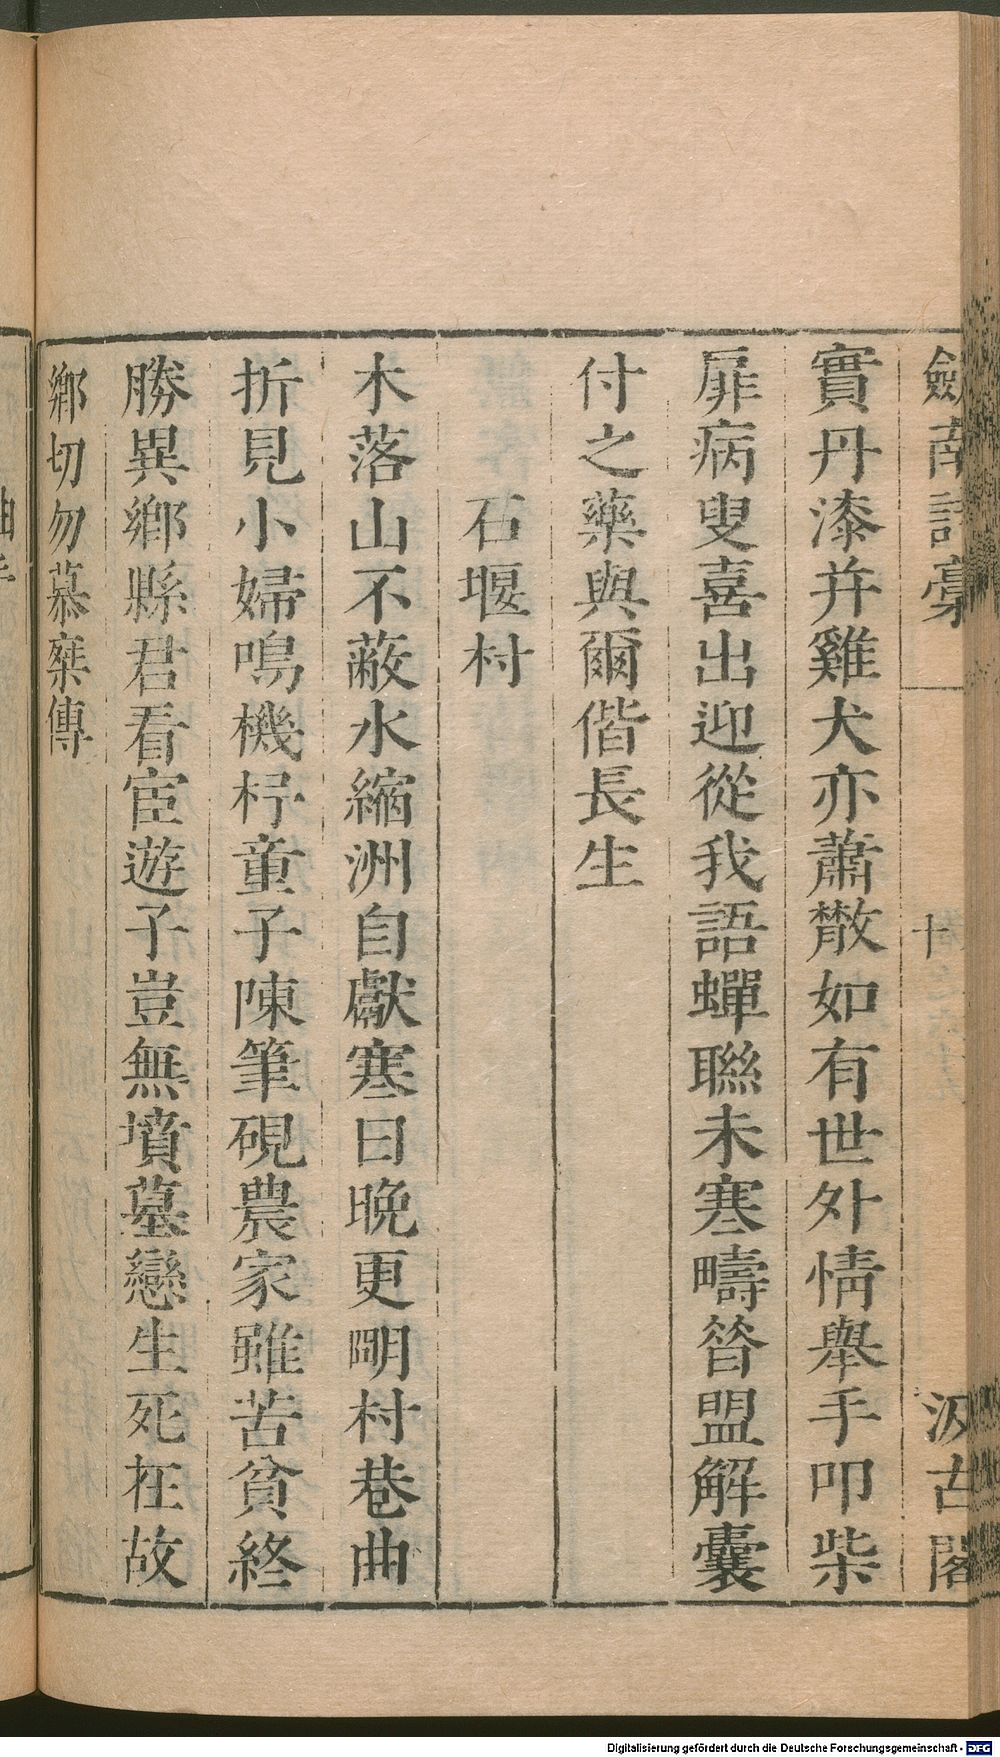 劒南詩稾 十 汲古閣
實丹漆并雞犬亦蕭散如有世外情舉手叩柴
扉病叟喜出迎從我語蟬聯未寒疇昝盟解囊
付之藥與爾偕長生
石堰村
木落山不蔽水縮洲自獻寒日晚更明村巷曲
折見小婦鳴機杼童子陳筆硯農家雖苦貧終
勝異鄉縣君看宦遊子豈無墳墓戀生死在故
鄉切勿慕乘傳
Digitalisierung gefördert durch die Deutsche Forschungsgemeinschaft - DFG